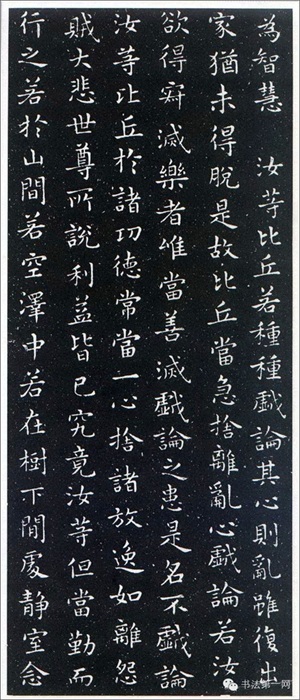 為智慧 汝等比丘若種種戲論其心則亂雖復出
家猶未得脫是故比丘當急捨離亂心戲論若汝
欲得寂滅樂者唯當善滅戲論之患是名不戲論
汝等比丘於諸功德常當一心捨諸放逸如離怨
賊大悲世尊所說利益皆已究竟汝等但當勤而
行之若於山間若空澤中若在樹下閒處靜室念
书法第一网